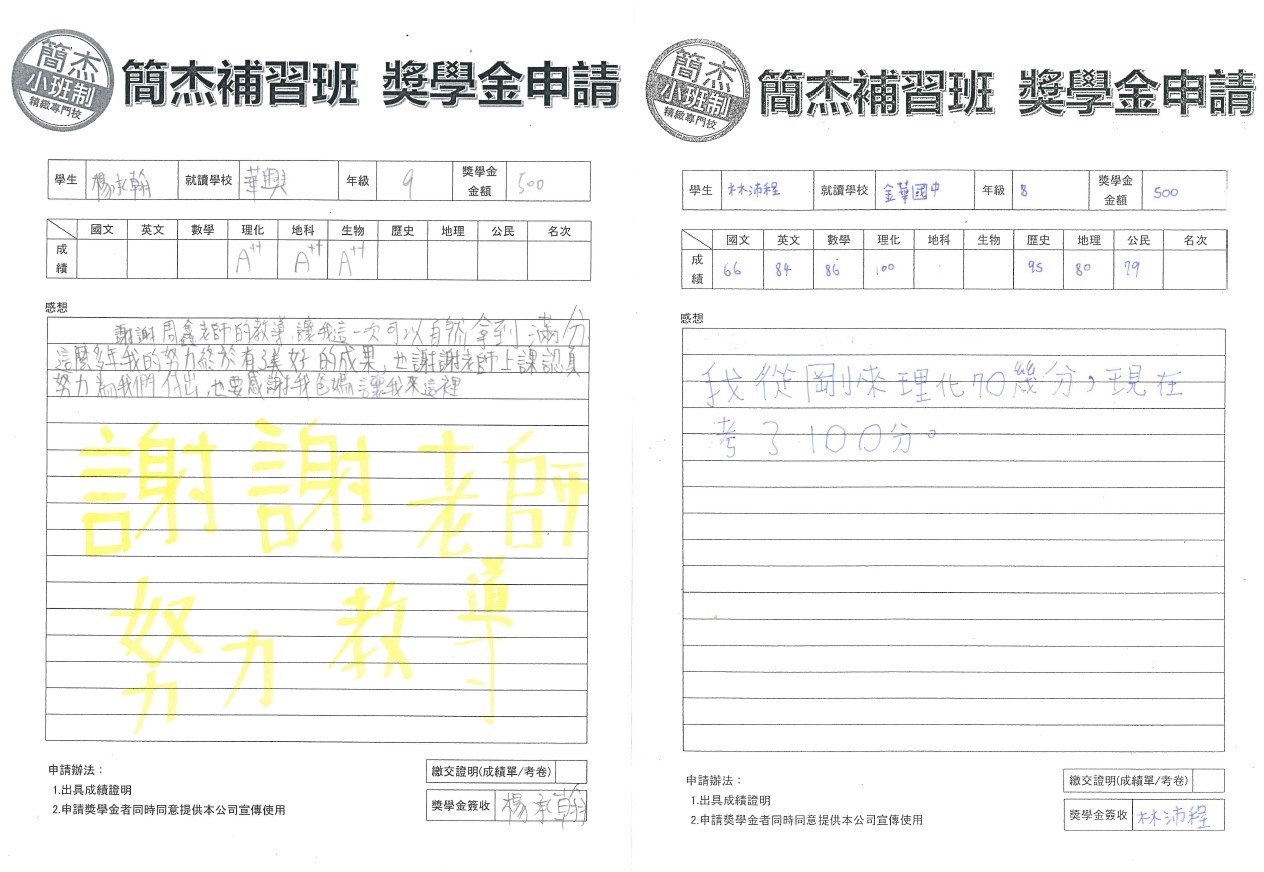 簡杰
小班制
精緻專門校
簡杰補習班 獎學金申請
學生 楊承翰 就讀學校 華興 年級 9 獎學金金額 500
國文 英文 數學 理化 地科 生物 歷史 地理 公民 名次
成績 A++ A++ A++
感想
謝謝周鑫老師的教導,讓我這一次可以自然拿到滿分
這麼多年我的努力終於有了美好的成果,也謝謝老師上課認真
努力為我們付出,也要感謝我爸媽讓我來這裡
謝謝老師
努力教導
申請辦法:
1.出具成績證明
2.申請獎學金者同時同意提供本公司宣傳使用
繳交證明(成績單/考卷)
獎學金簽收 楊承翰
簡杰
小班制
精緻專門校
簡杰補習班 獎學金申請
學生 林沛程 就讀學校 金華國中 年級 8 獎學金金額 500
國文 英文 數學 理化 地科 生物 歷史 地理 公民 名次
成績 66 84 86 100 95 80 79
感想
我從剛來理化70幾分,現在
考了100分。
申請辦法:
1.出具成績證明
2.申請獎學金者同時同意提供本公司宣傳使用
繳交證明(成績單/考卷)
獎學金簽收 林沛程